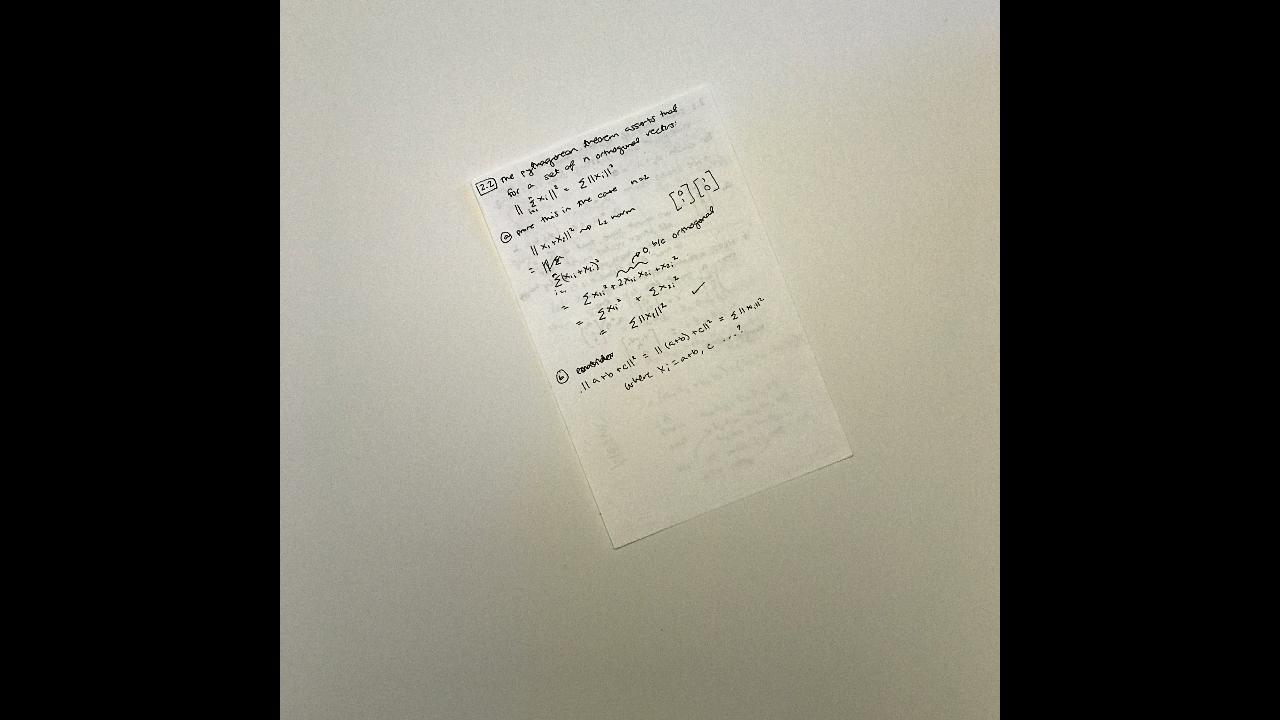 2.2 The Pythagorean theorem asserts that
for a set of n orthogonal vectors:
|| n∑i=1 xᵢ ||² = ∑ ||xᵢ||²
ⓐ prove this in the case n=2
|| x₁ + x₂ ||² → L₂ norm [0 1] [1 0]
= ||
∑i=1 (x₁ᵢ + x₂ᵢ)² → 0, b/c orthogonal
= ∑ x₁ᵢ² + 2x₁ᵢ x₂ᵢ + x₂ᵢ²
= ∑ x₁ᵢ² + ∑ x₂ᵢ²
= ∑ ||xᵢ||² ✓
ⓑ consider
|| a+b+c ||² = || (a+b) + c ||² = ∑ || xᵢ ||²
where xᵢ = a+b, c ...?